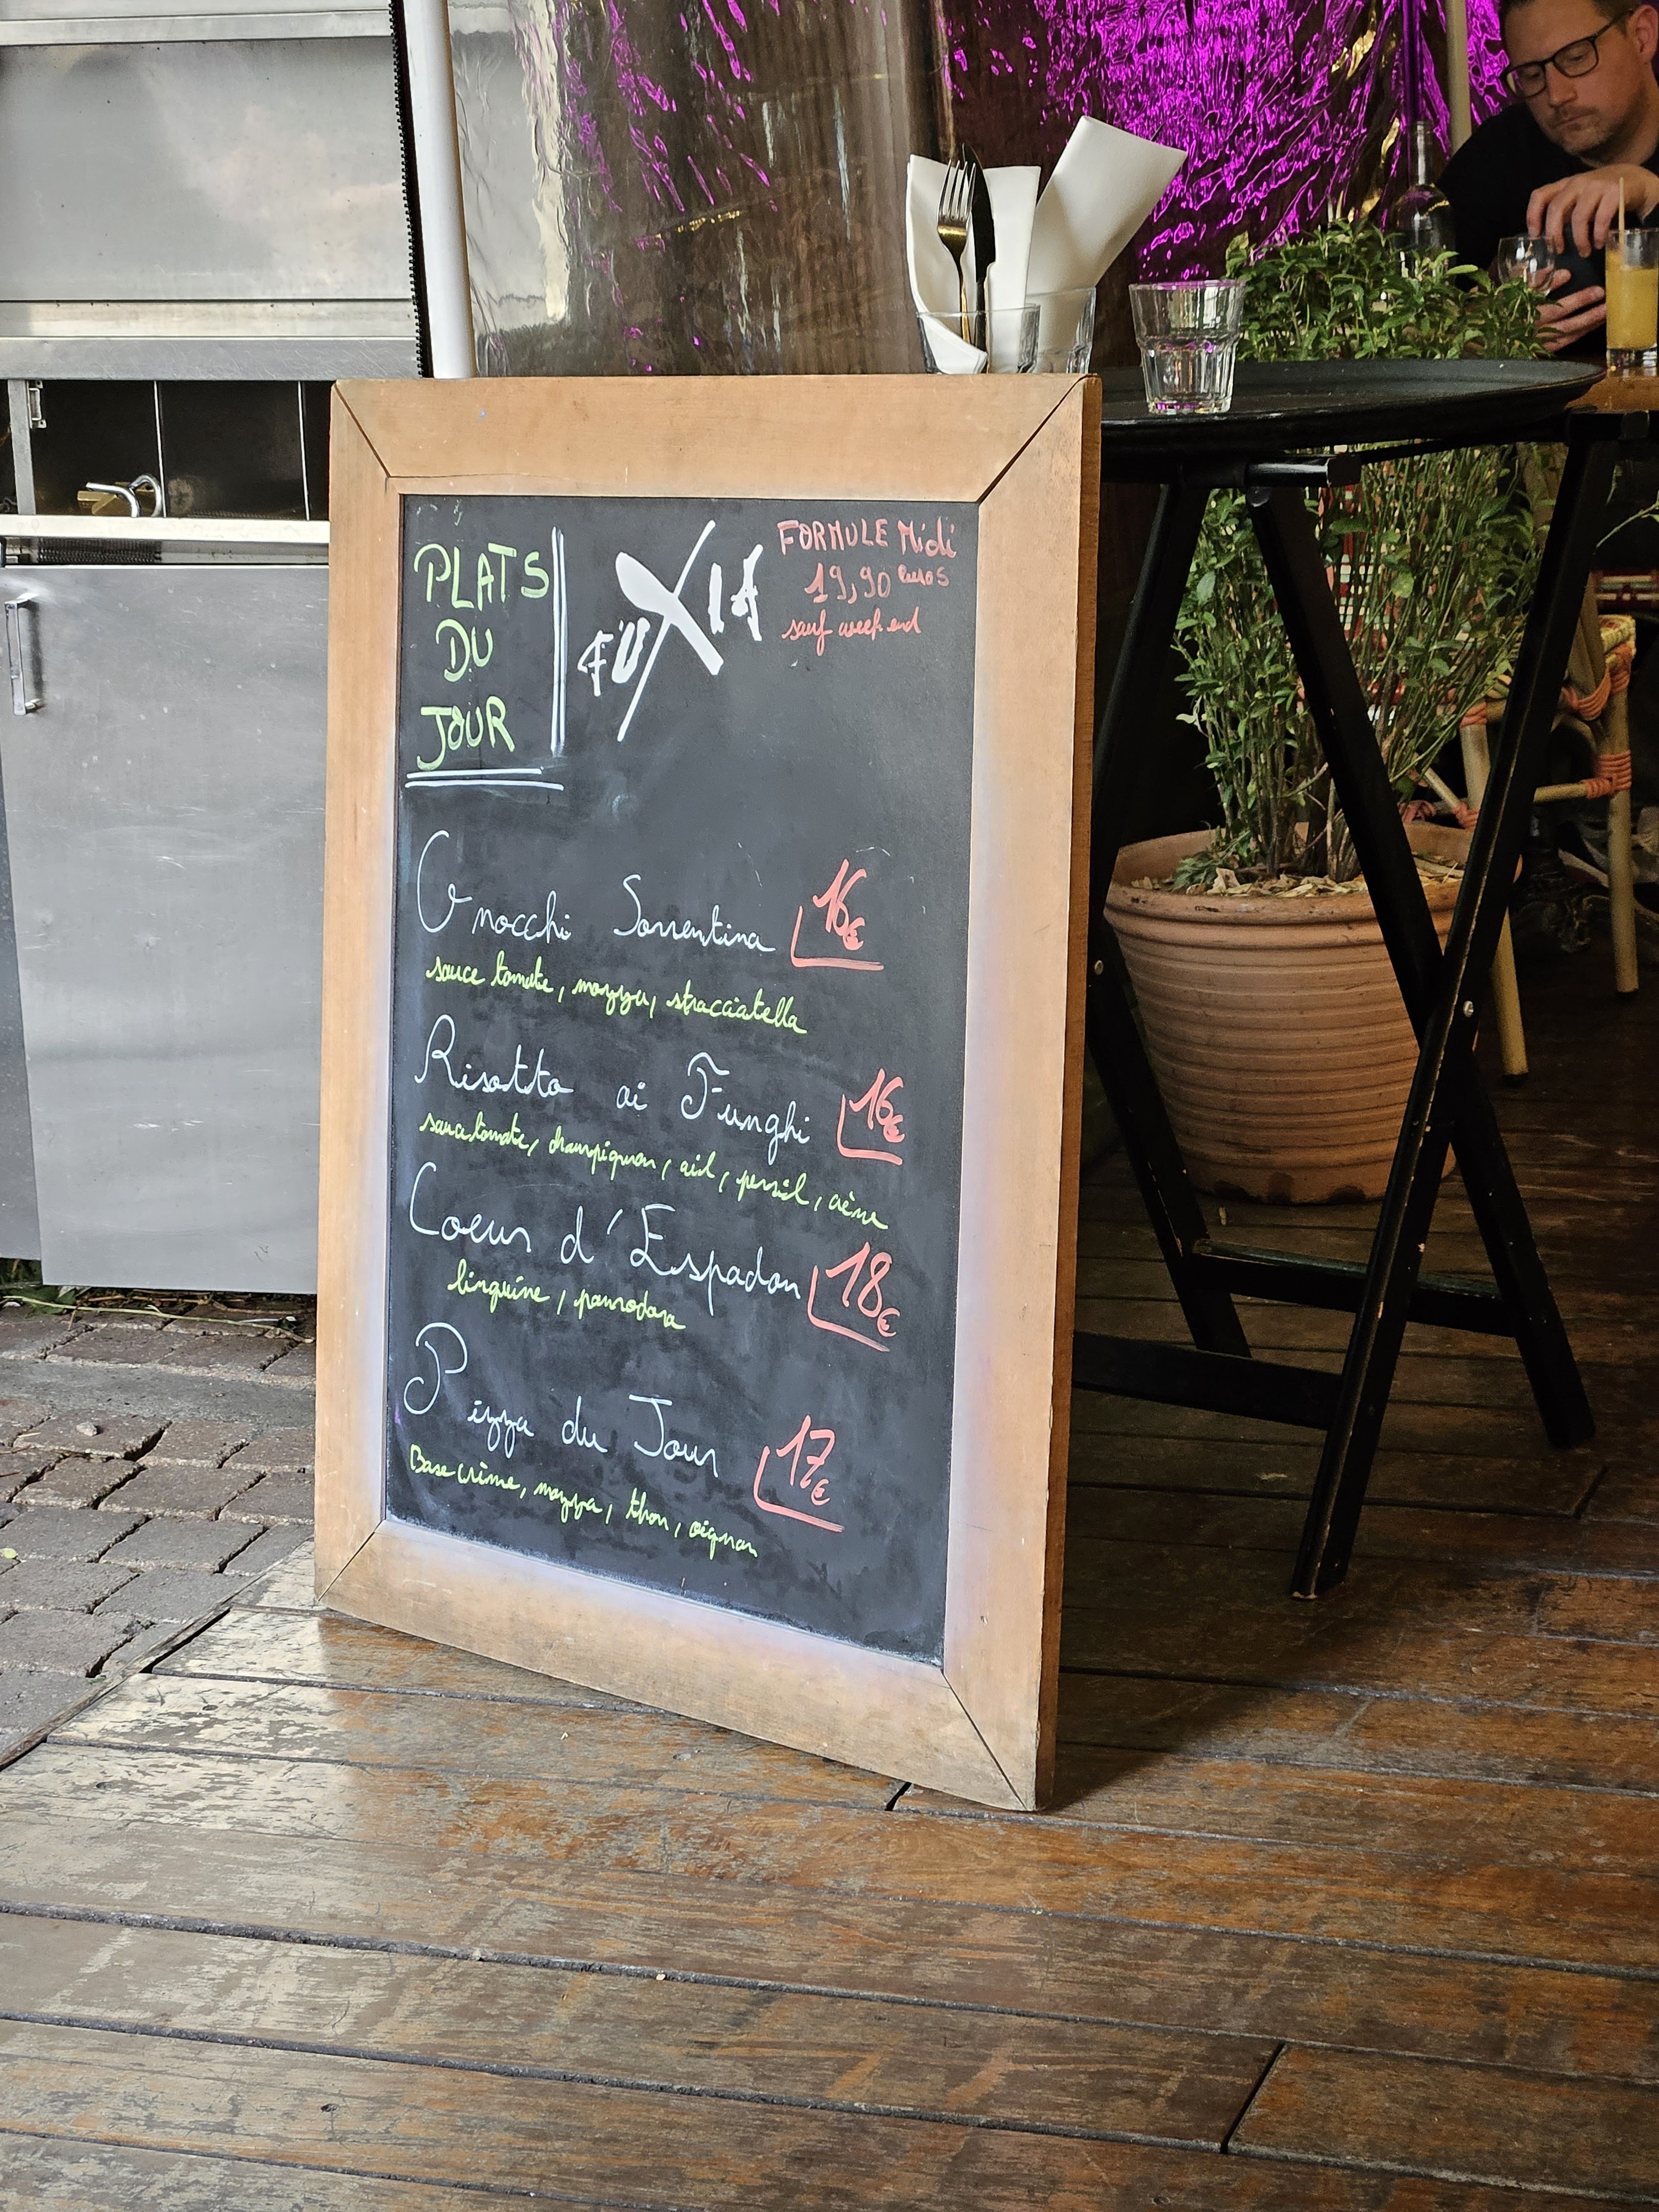 PLATS
DU
JOUR
FUXIA
FORMULE Midi
19,90 euros
sauf week-end
Gnocchi Sorrentina 16€
sauce tomate, mozza, stracciatella
Risotto ai Funghi 16€
sauce tomate, champignon, ail, persil, crème
Coeur d'Espadon 18€
linguine, pomodoro
Pizza du Jour 17€
Base crème, mozza, thon, oignon